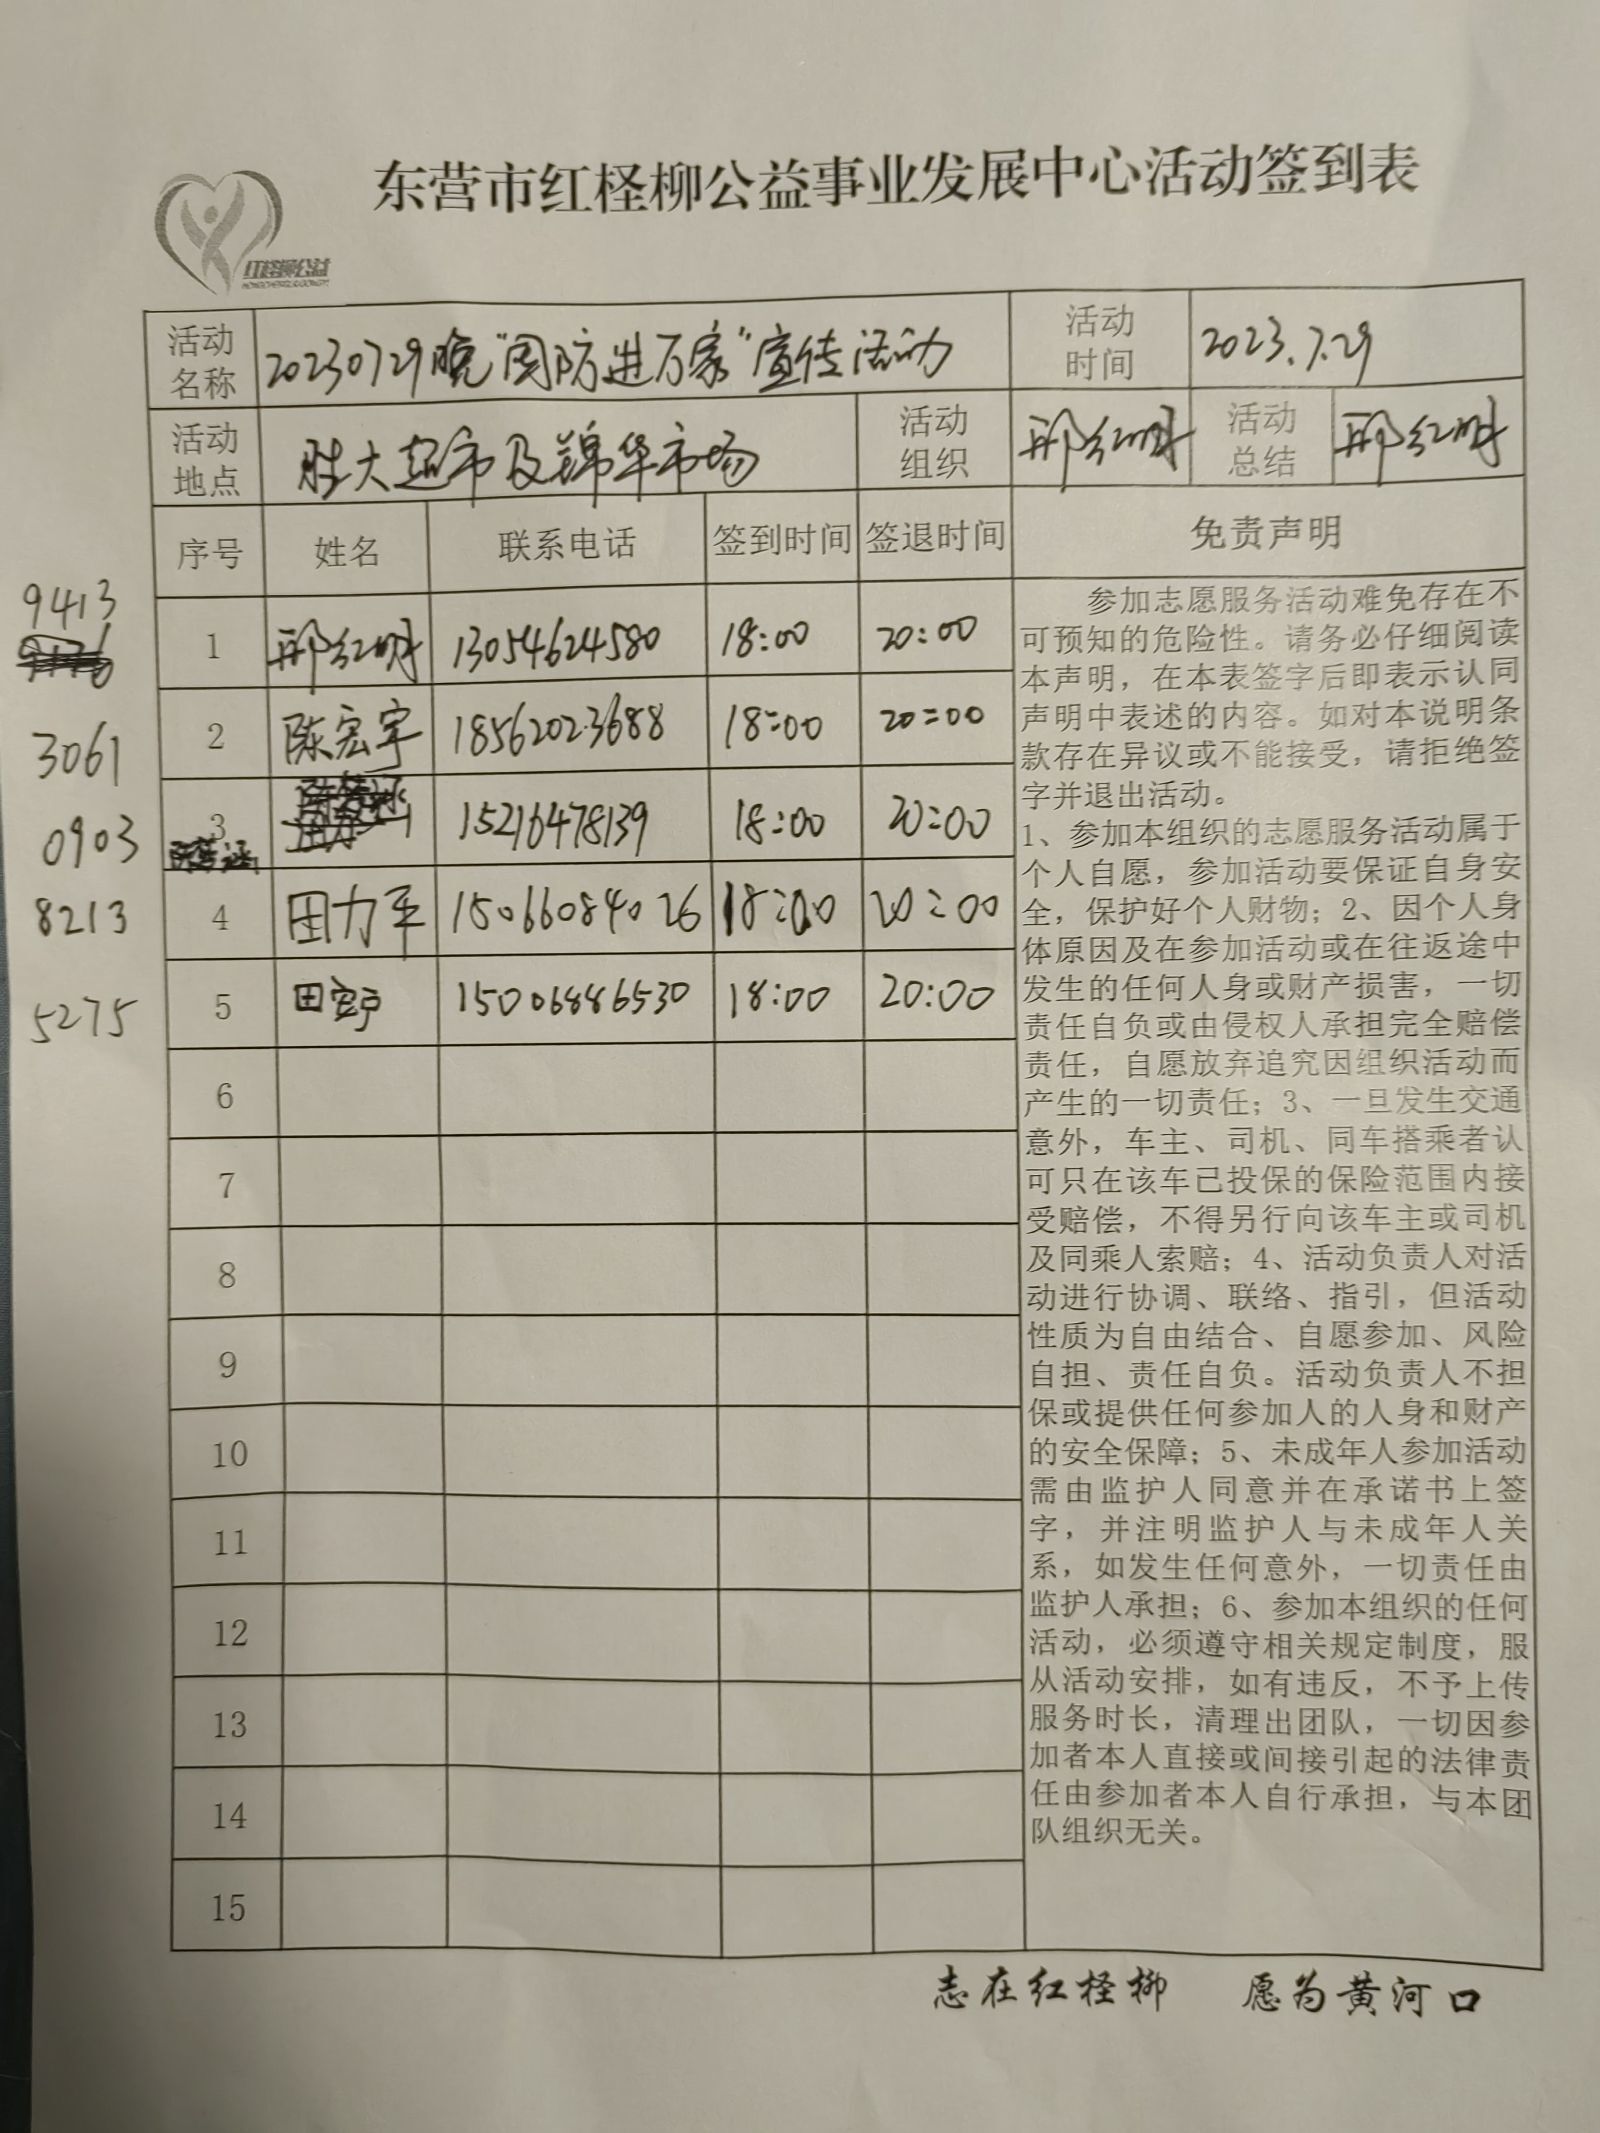 东营市红柽柳公益事业发展中心活动签到表
红柽柳公益
活动名称 20230729晚"国防进万家"宣传活动 活动时间 2023.7.29
活动地点 胜大超市及锦华市场 活动组织 邢红明 活动总结 邢红明
序号 姓名 联系电话 签到时间 签退时间 免责声明
9413 1 邢红明 13054624580 18:00 20:00
3061 2 陈宏宇 18562023688 18:00 20:00
0903 3 15216478139 18:00 20:00
8213 4 田力平 15066084026 18:00 20:00
5275 5 田 15006886530 18:00 20:00
6
7
8
9
10
11
12
13
14
15
参加志愿服务活动难免存在不
可预知的危险性。请务必仔细阅读
本声明，在本表签字后即表示认同
声明中表述的内容。如对本说明条
款存在异议或不能接受，请拒绝签
字并退出活动。
1、参加本组织的志愿服务活动属于
个人自愿，参加活动要保证自身安
全，保护好个人财物；2、因个人身
体原因及在参加活动或在往返途中
发生的任何人身或财产损害，一切
责任自负或由侵权人承担完全赔偿
责任，自愿放弃追究因组织活动而
产生的一切责任；3、一旦发生交通
意外，车主、司机、同车搭乘者认
可只在该车已投保的保险范围内接
受赔偿，不得另行向该车主或司机
及同乘人索赔；4、活动负责人对活
动进行协调、联络、指引，但活动
性质为自由结合、自愿参加、风险
自担、责任自负。活动负责人不担
保或提供任何参加人的人身和财产
的安全保障；5、未成年人参加活动
需由监护人同意并在承诺书上签
字，并注明监护人与未成年人关
系，如发生任何意外，一切责任由
监护人承担；6、参加本组织的任何
活动，必须遵守相关规定制度，服
从活动安排，如有违反，不予上传
服务时长，清理出团队，一切因参
加者本人直接或间接引起的法律责
任由参加者本人自行承担，与本团
队组织无关。
志在红柽柳 愿为黄河口